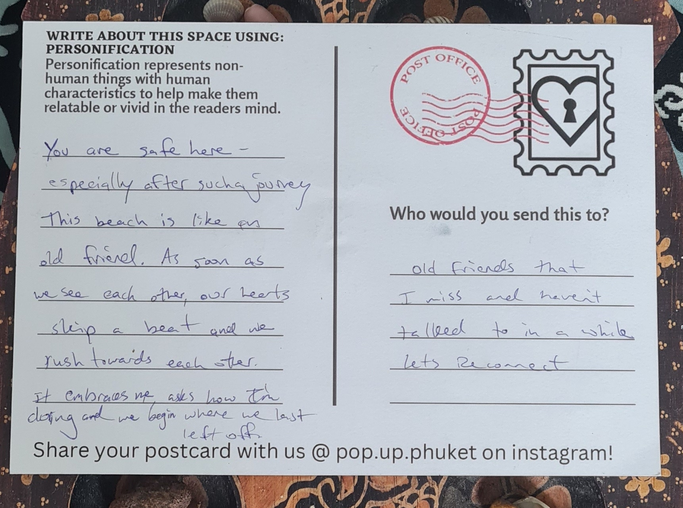 WRITE ABOUT THIS SPACE USING:
PERSONIFICATION
Personification represents non-
human things with human
characteristics to help make them
relatable or vivid in the readers mind.
You are safe here -
especially after such a journey
This beach is like an
old friend. As soon as
we see each other, our hearts
skip a beat and we
rush towards each other.
It embraces me, asks how I'm
doing and we begin where we last
left off.
POST OFFICE
POST OFFICE
Who would you send this to?
old friends that
I miss and haven't
talked to in a while
lets Reconnect
Share your postcard with us @ pop.up.phuket on instagram!